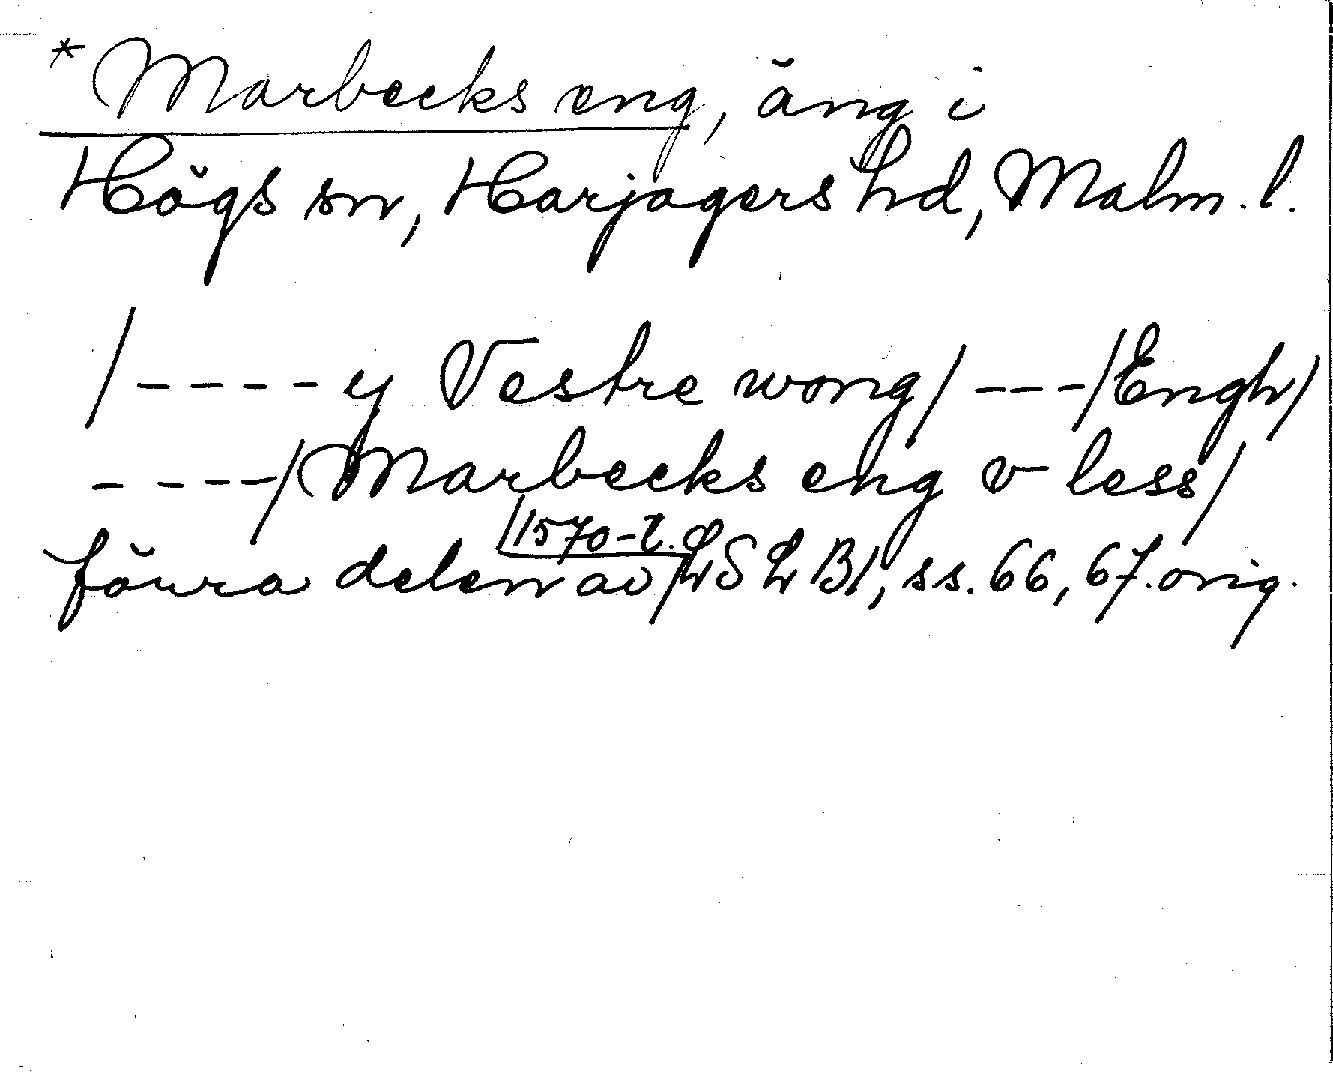 * Marbecks eng, äng i
Högs sn, Harjagers hd, Malm. l.
/---- y Vestre wong/ ---/Engh/
----/Marbecks eng v less/
förra delen av /1570-t./ LSLB1, ss. 66, 67. orig.